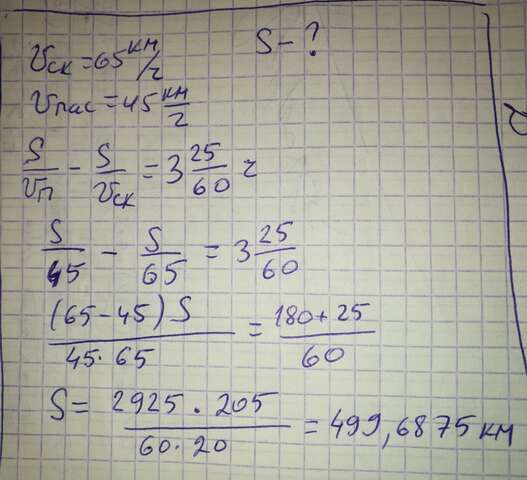 Vск = 65 км/ч
S - ?
Vпас = 45 км/ч
S/Vп - S/Vск = 3 25/60 ч
S/45 - S/65 = 3 25/60
(65-45) S / 45·65 = 180+25 / 60
S = 2925 · 205 / 60·20 = 499,6875 км